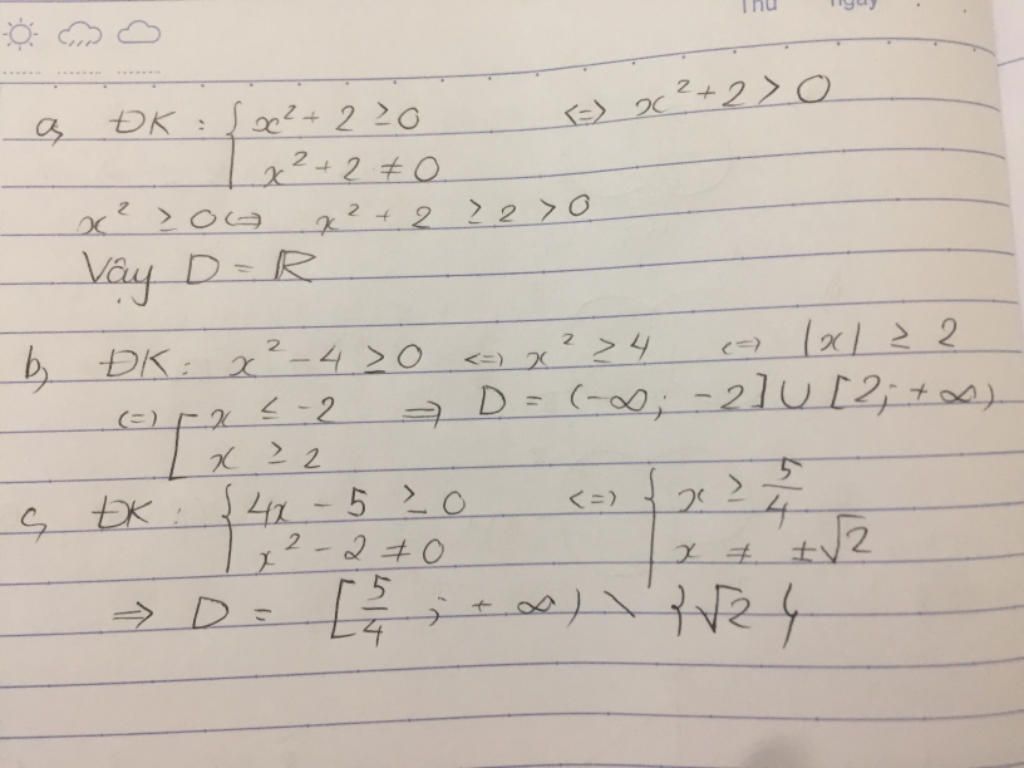 Thứ ngày
a, ĐK : { x² + 2 ≥ 0 <=> x² + 2 > 0
x² + 2 ≠ 0
x² ≥ 0 <=> x² + 2 ≥ 2 > 0
Vậy D = ℝ
b, ĐK : x² - 4 ≥ 0 <=> x² ≥ 4 <=> |x| ≥ 2
<=> [ x ≤ -2 => D = (-∞; -2] ∪ [2; +∞)
x ≥ 2
c, ĐK : { 4x - 5 ≥ 0 <=> { x ≥ 5/4
x² - 2 ≠ 0 x ≠ ±√2
=> D = [5/4 ; +∞) \ {√2}